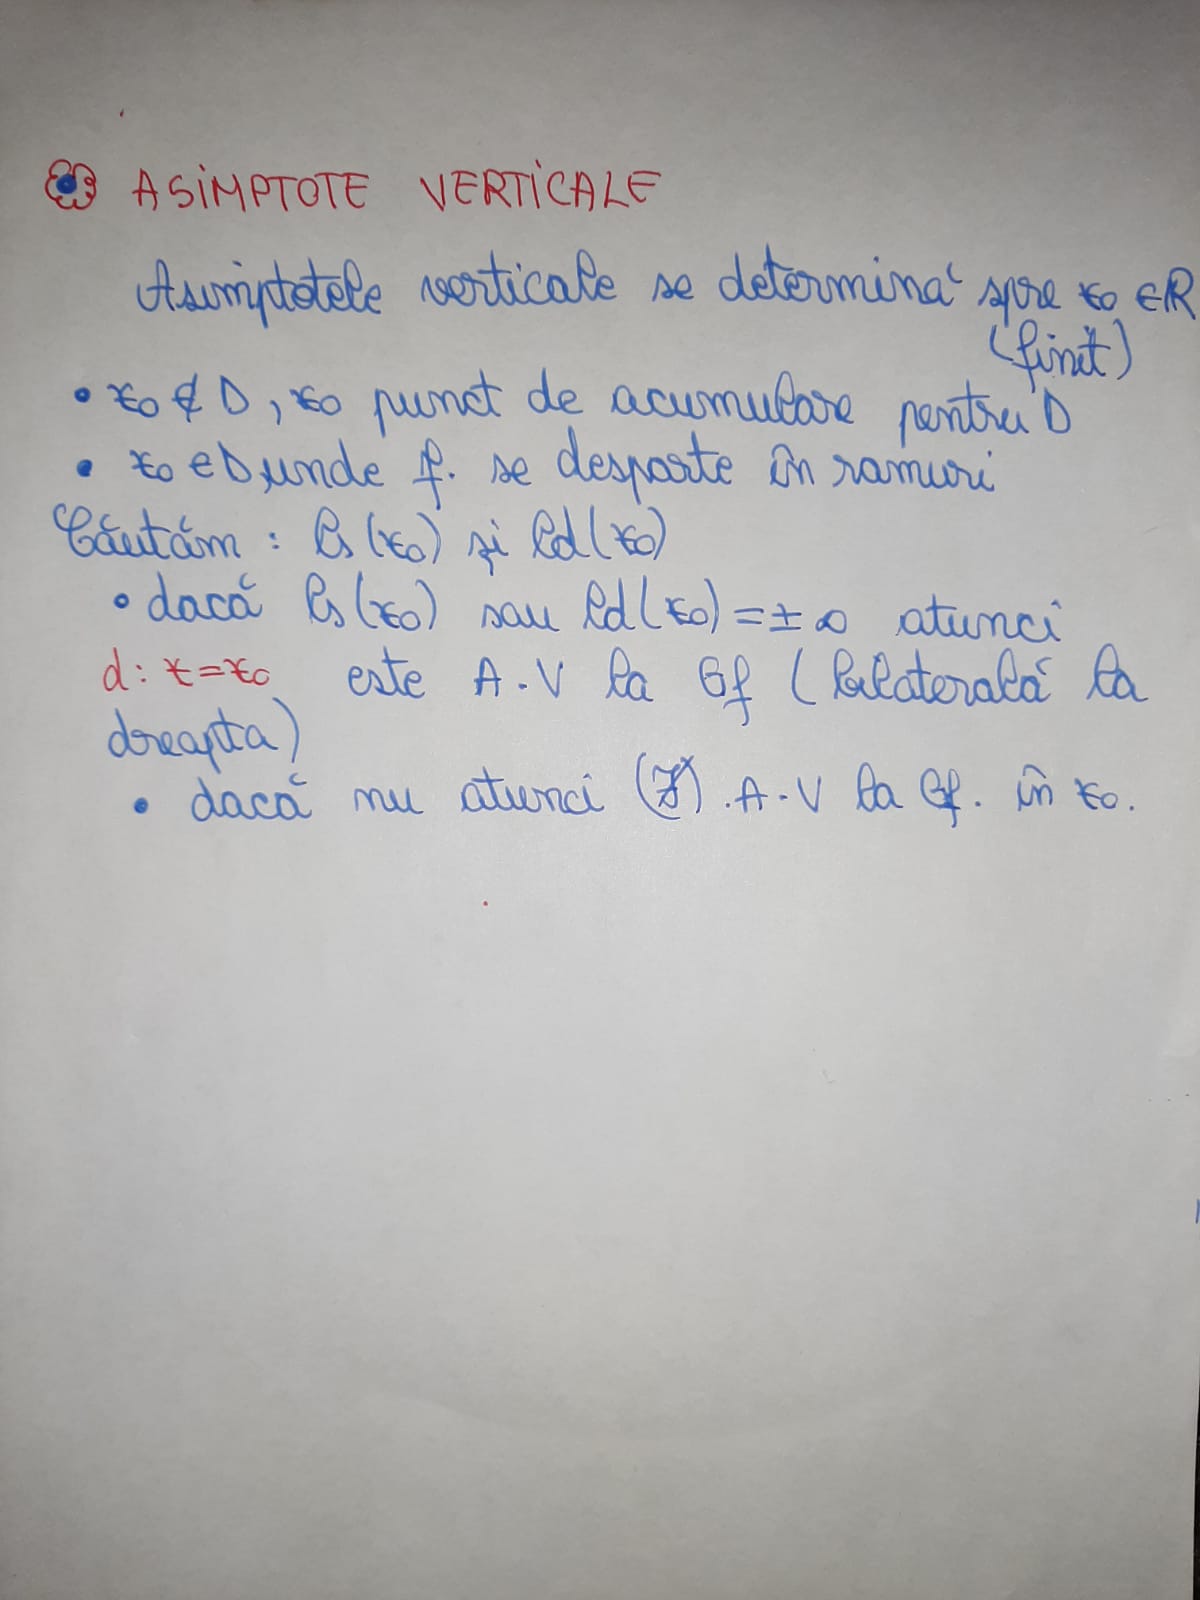 ASIMPTOTE VERTICALE
Asimptotele verticale se determină spre x₀ ∈ R
(finit)
• x₀ ∉ D, x₀ punct de acumulare pentru D
• x₀ ∈ D, unde f. se desparte în ramuri
Căutăm : ls(x₀) și ld(x₀)
• dacă ls(x₀) sau ld(x₀) = ± ∞ atunci
d: x = x₀ este A.V la Gf (bilaterală la
dreapta)
• dacă nu atunci (∄) .A.V la Gf. în x₀.